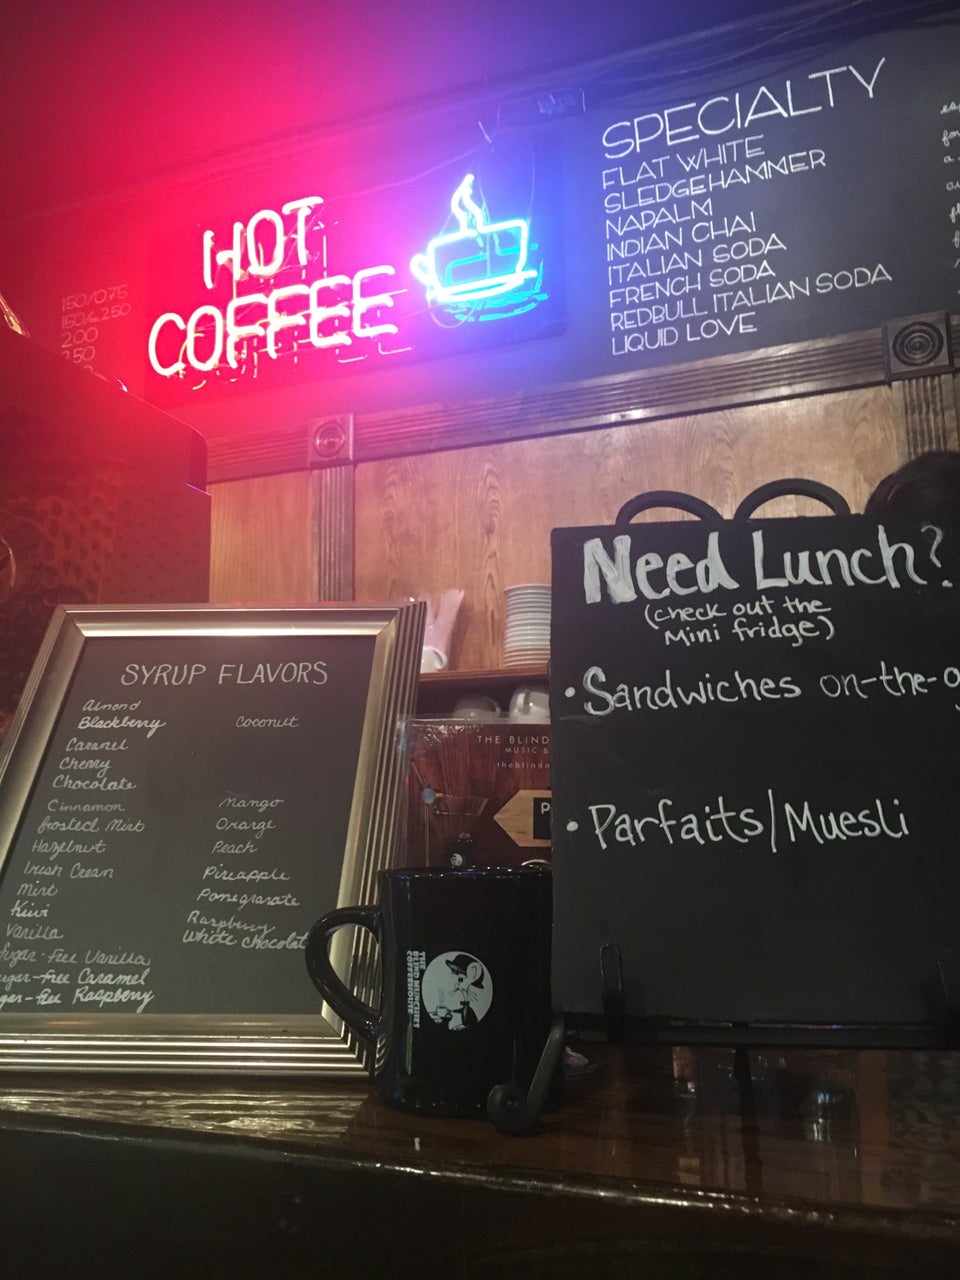 HOT
COFFEE
SPECIALTY
FLAT WHITE
SLEDGEHAMMER
NAPALM
INDIAN CHAI
ITALIAN SODA
FRENCH SODA
REDBULL ITALIAN SODA
LIQUID LOVE
2.00
Need Lunch?
(check out the
Mini fridge)
• Sandwiches on-the-
• Parfaits/Muesli
SYRUP FLAVORS
Almond
Blackberry
Caramel
Cherry
Chocolate
Cinnamon
Frosted Mint
Hazelnut
Irish Cream
Mint
Kiwi
Vanilla
Sugar-free Vanilla
ugar-free Caramel
gar-free Raspberry
Coconut
Mango
Orange
Peach
Pineapple
Pomegranate
Raspberry
White Chocolat
THE BLIND
MUSIC &
theblind
P
THE
BLIND MUNCHIES
COFFEEHOUSE